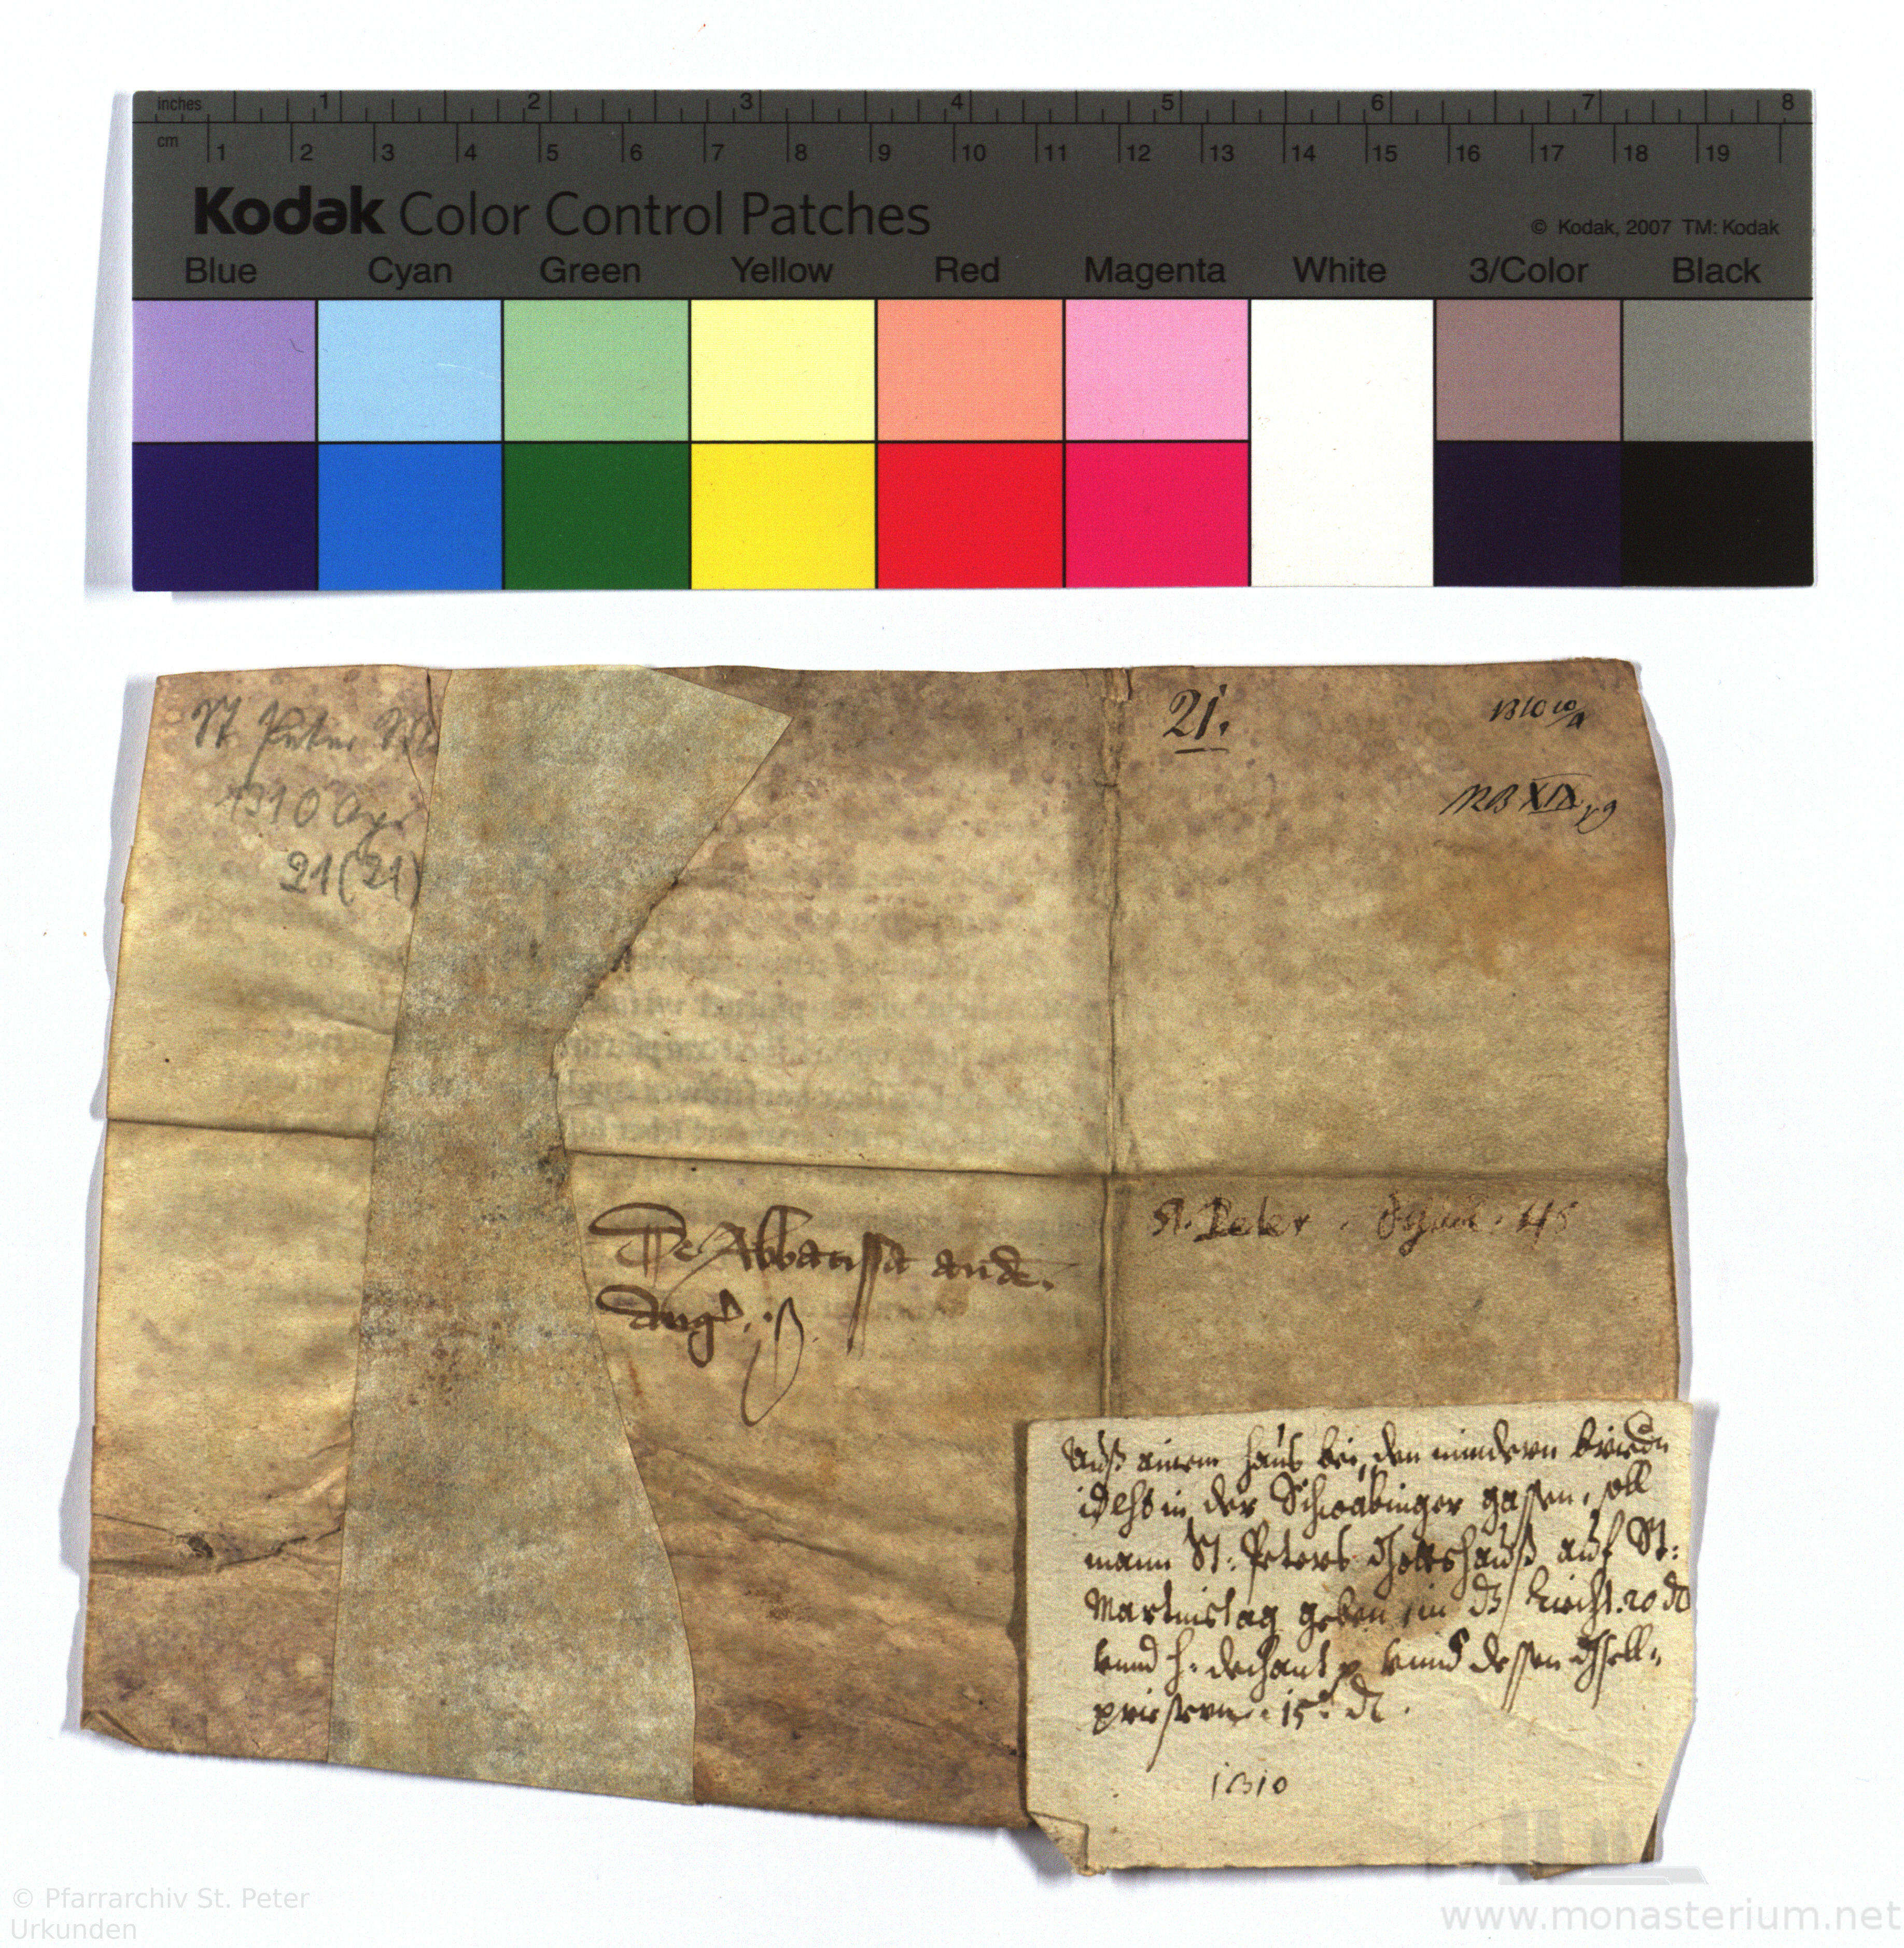 inches 1 2 3 4 5 6 7 8
cm 1 2 3 4 5 6 7 8 9 10 11 12 13 14 15 16 17 18 19
Kodak Color Control Patches
© Kodak, 2007 TM: Kodak
Blue Cyan Green Yellow Red Magenta White 3/Color Black
St Peter
1310 Apr
21 (21)
21.
1310
RB XIX
De Abbatissa
St. Peter
Auß ainem hauß bei den mindern briedn
in der Schwabinger gassen, soll
mann St: Peters Gottshauß auf St:
Martinstag geben in
vnnd h: dechant vnnd dessen Gsell-
priestern 15 dl.
1310
© Pfarrarchiv St. Peter
Urkunden
www.monasterium.net